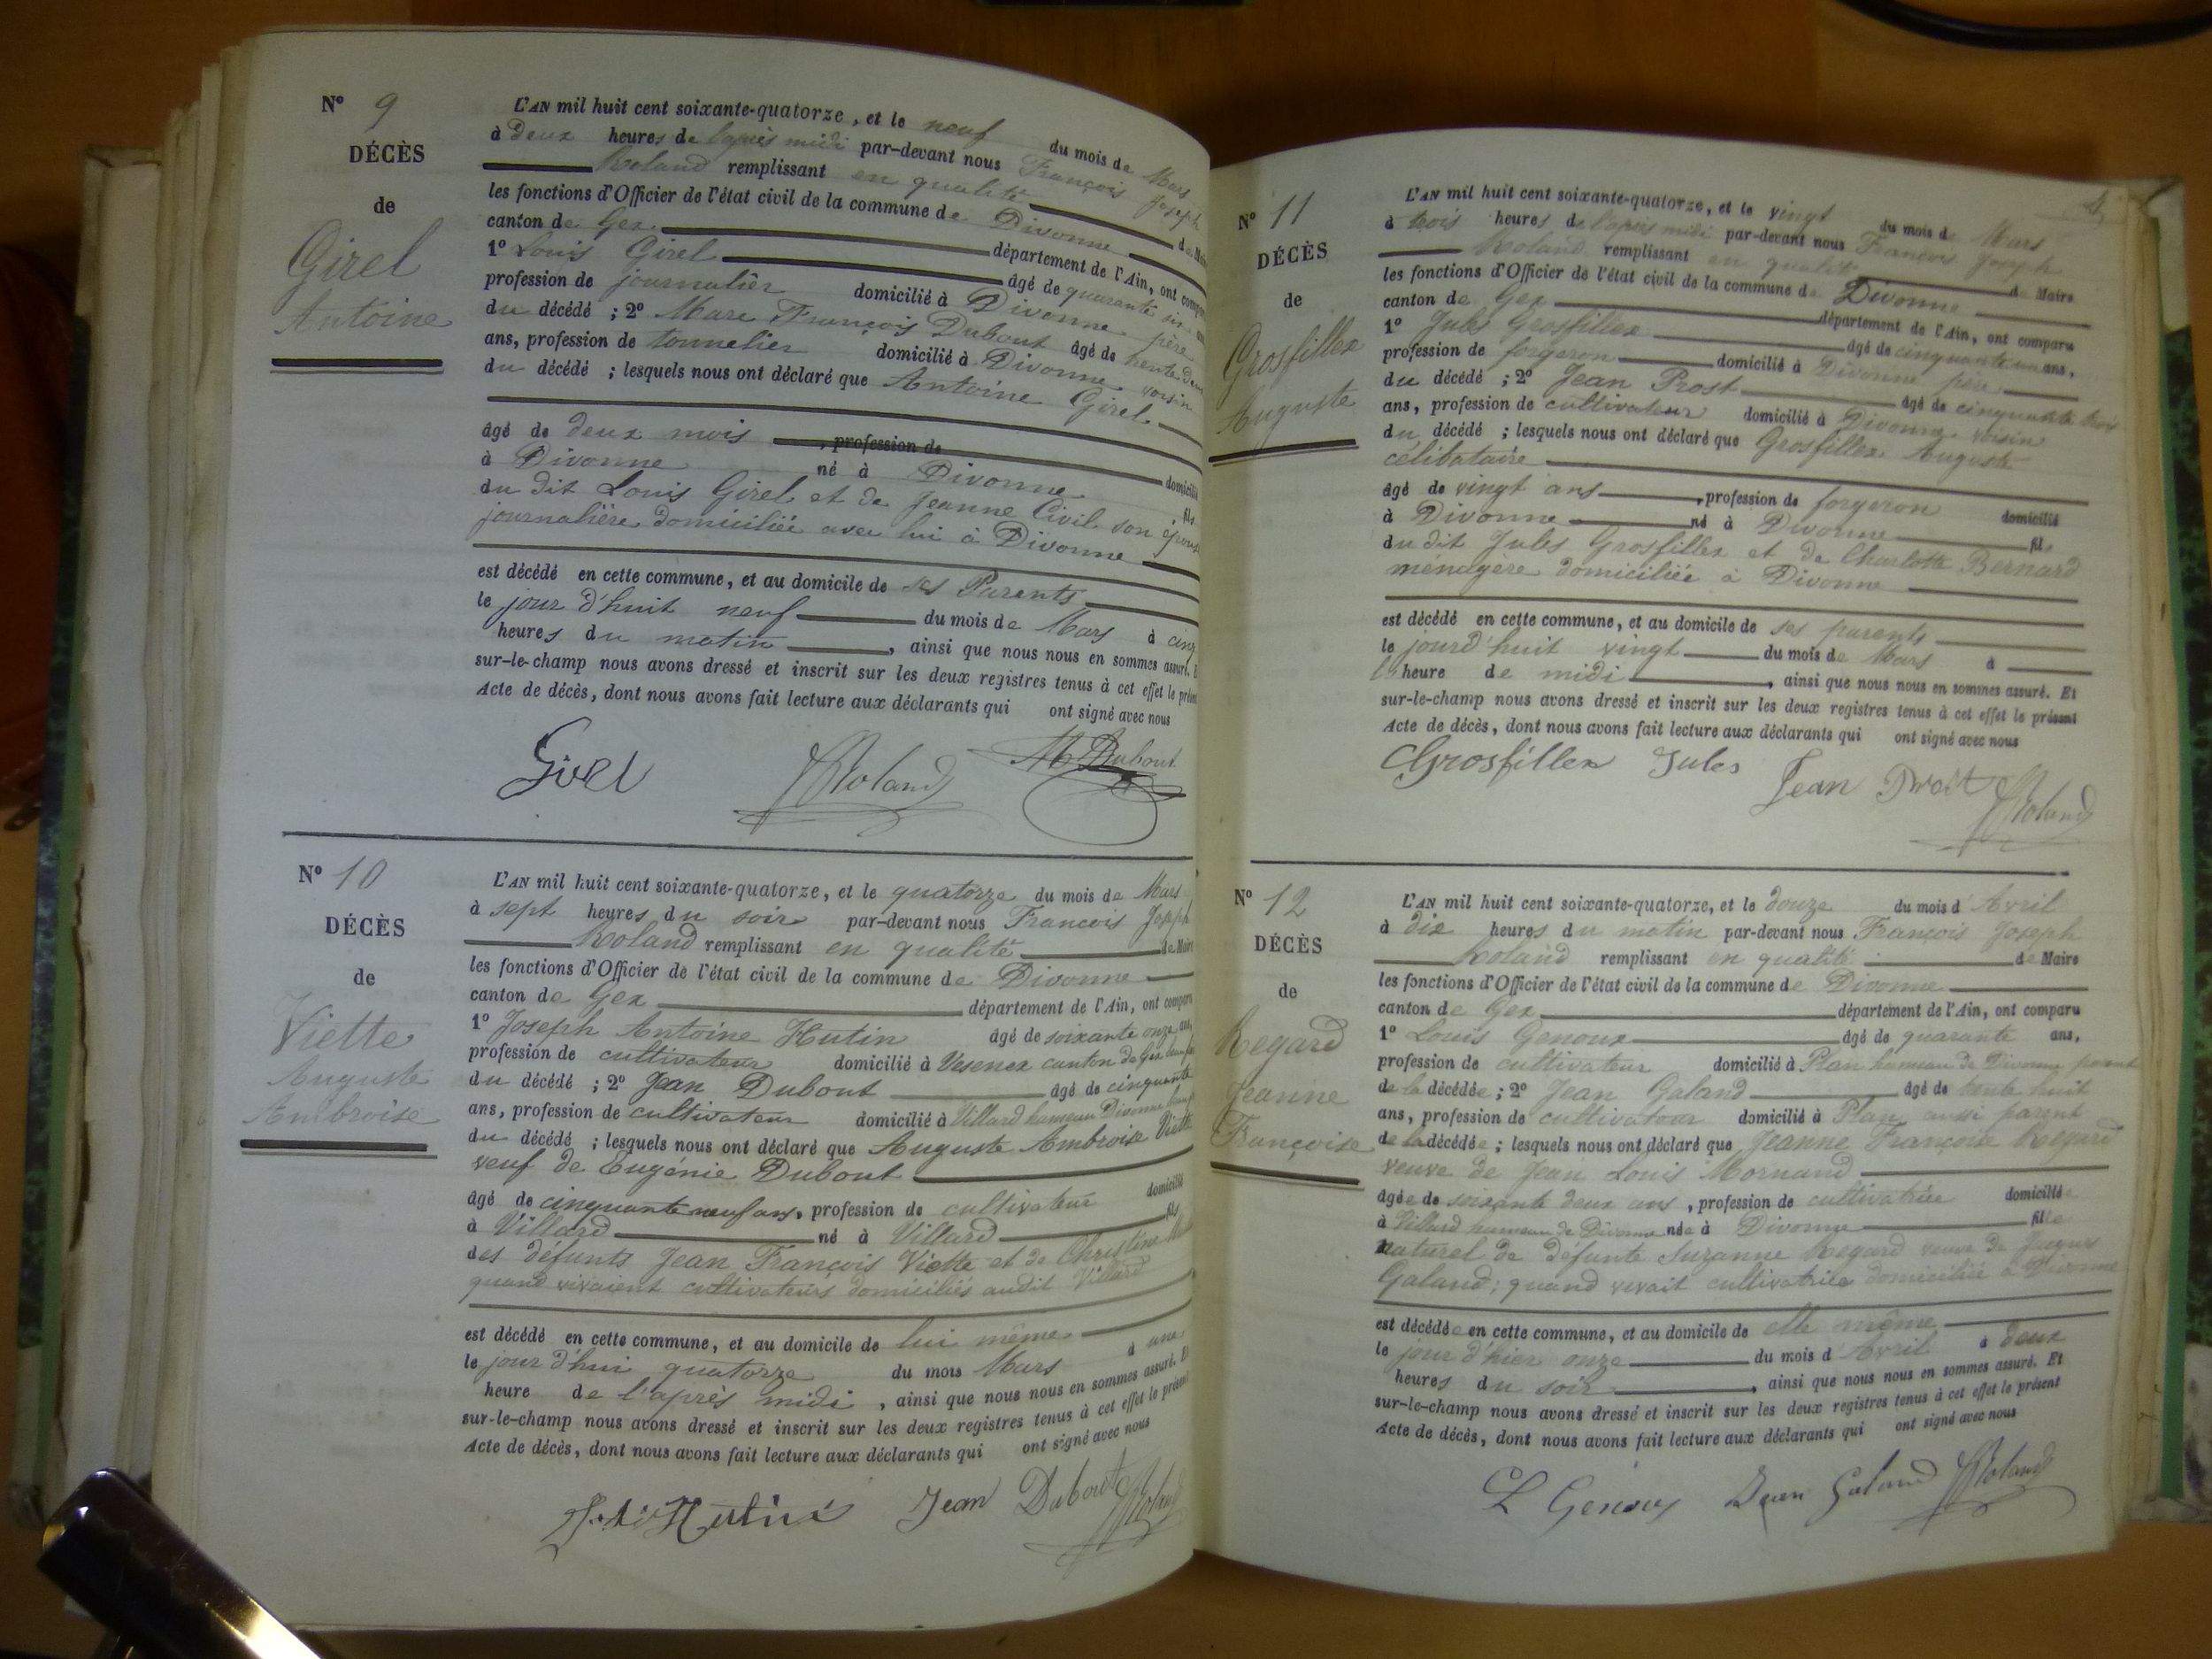 N° 9
DÉCÈS
de
Girel
Antoine
L'AN mil huit cent soixante-quatorze, et le neuf du mois de Mars
à deux heures de l'après midi par-devant nous François Joseph
Roland remplissant en qualité de Maire
les fonctions d'Officier de l'état civil de la commune de Divonne
canton de Gex département de l'Ain, ont comparu
1° Louis Girel âgé de quarante six ans
profession de journalier domicilié à Divonne père
du décédé ; 2° Marc François Dubout âgé de trente deux
ans, profession de tonnelier domicilié à Divonne voisin
du décédé ; lesquels nous ont déclaré que Antoine Girel
âgé de deux mois , profession de domicilié
à Divonne né à Divonne , fils
du dit Louis Girel et de Jeanne Civil son épouse
journalière domiciliée avec lui à Divonne
est décédé en cette commune, et au domicile de ses Parents
le jour d'huit neuf du mois de Mars à cinq
heures du matin , ainsi que nous nous en sommes assuré. Et
sur-le-champ nous avons dressé et inscrit sur les deux registres tenus à cet effet le présent
Acte de décès, dont nous avons fait lecture aux déclarants qui ont signé avec nous
Girel JRoland M Dubout
N° 10
DÉCÈS
de
Viette
Auguste
Ambroise
L'AN mil huit cent soixante-quatorze, et le quatorze du mois de Mars
à sept heures du soir par-devant nous François Joseph
Roland remplissant en qualité de Maire
les fonctions d'Officier de l'état civil de la commune de Divonne
canton de Gex département de l'Ain, ont comparu
1° Joseph Antoine Hutin âgé de soixante onze ans,
profession de cultivateur domicilié à Vesenex canton de Gex
du décédé ; 2° Jean Dubout âgé de cinquante
ans, profession de cultivateur domicilié à Villard hameau Divonne
du décédé ; lesquels nous ont déclaré que Auguste Ambroise Viette
veuf de Eugénie Dubout
âgé de cinquante neuf ans, profession de cultivateur domicilié
à Villard né à Villard fils
des défunts Jean François Viette et de Christine
quand vivaient cultivateurs domiciliés audit Villard
est décédé en cette commune, et au domicile de lui même
le jour d'hui quatorze du mois Mars à une
heure de l'après midi , ainsi que nous nous en sommes assuré. Et
sur-le-champ nous avons dressé et inscrit sur les deux registres tenus à cet effet le présent
Acte de décès, dont nous avons fait lecture aux déclarants qui ont signé avec nous
Hutin Jean Dubout JRoland
N° 11
DÉCÈS
de
Grosfillex
Auguste
L'AN mil huit cent soixante-quatorze, et le vingt du mois de Mars
à trois heures de l'après midi par-devant nous François Joseph
Roland remplissant en qualité de Maire
les fonctions d'Officier de l'état civil de la commune de Divonne
canton de Gex département de l'Ain, ont comparu
1° Jules Grosfillex âgé de cinquante un ans,
profession de forgeron domicilié à Divonne père
du décédé ; 2° Jean Prost âgé de cinquante trois
ans, profession de cultivateur domicilié à Divonne voisin
du décédé ; lesquels nous ont déclaré que Grosfillex Auguste
célibataire
âgé de vingt ans , profession de forgeron domicilié
à Divonne né à Divonne fils
du dit Jules Grosfillex et de Charlotte Bernard
ménagère domiciliée à Divonne
est décédé en cette commune, et au domicile de ses parents
le jourd'huit vingt du mois de Mars à
l'heure de midi , ainsi que nous nous en sommes assuré. Et
sur-le-champ nous avons dressé et inscrit sur les deux registres tenus à cet effet le présent
Acte de décès, dont nous avons fait lecture aux déclarants qui ont signé avec nous
Grosfillex Jules Jean Prost JRoland
N° 12
DÉCÈS
de
Regard
Jeanne
Françoise
L'AN mil huit cent soixante-quatorze, et le douze du mois d'Avril
à dix heures du matin par-devant nous François Joseph
Roland remplissant en qualité de Maire
les fonctions d'Officier de l'état civil de la commune de Divonne
canton de Gex département de l'Ain, ont comparu
1° Louis Genoux âgé de quarante ans,
profession de cultivateur domicilié à Plan hameau de Divonne parent
de la décédée ; 2° Jean Galand âgé de trente huit
ans, profession de cultivateur domicilié à Plan, aussi parent
de la décédée ; lesquels nous ont déclaré que Jeanne Françoise Regard
veuve de Jean Louis Mornand
âgée de soixante deux ans , profession de cultivatrice domiciliée
à Villard hameau de Divonne née à Divonne fille
naturel de défunte Suzanne Regard veuve de Jacques
Galand ; quand vivait cultivatrice domiciliée à Divonne
est décédée en cette commune, et au domicile de elle même
le jour d'hier onze du mois d'Avril à deux
heures du soir , ainsi que nous nous en sommes assuré. Et
sur-le-champ nous avons dressé et inscrit sur les deux registres tenus à cet effet le présent
Acte de décès, dont nous avons fait lecture aux déclarants qui ont signé avec nous
L Genoux Jean Galand JRoland